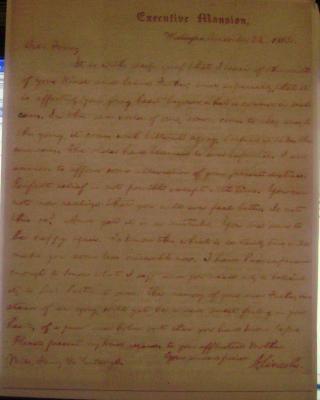 Executive Mansion,
Washington, December 23, 1862.
Dear Fanny
It is with deep grief that I learn of the death
of your kind and brave Father; and, especially, that it
is affecting your young heart beyond what is common in such
cases. In this sad world of ours, sorrow comes to all; and, to
the young, it comes with bitterest agony, because it takes them
unawares. The older have learned to ever expect it. I am
anxious to afford some alleviation of your present distress.
Perfect relief is not possible, except with time. You can
not now realize that you will ever feel better. Is not
this so? And yet it is a mistake. You are sure to
be happy again. To know this, which is certainly true, will
make you some less miserable now. I have had experience
enough to know what I say; and you need only to believe
it, to feel better at once. The memory of your dear Father, in-
stead of an agony, will yet be a sad sweet feeling in your
heart, of a purer and holier sort than you have known before.
Please present my kind regards to your afflicted mother.
Your sincere friend
A. Lincoln.
Miss. Fanny McCullough.